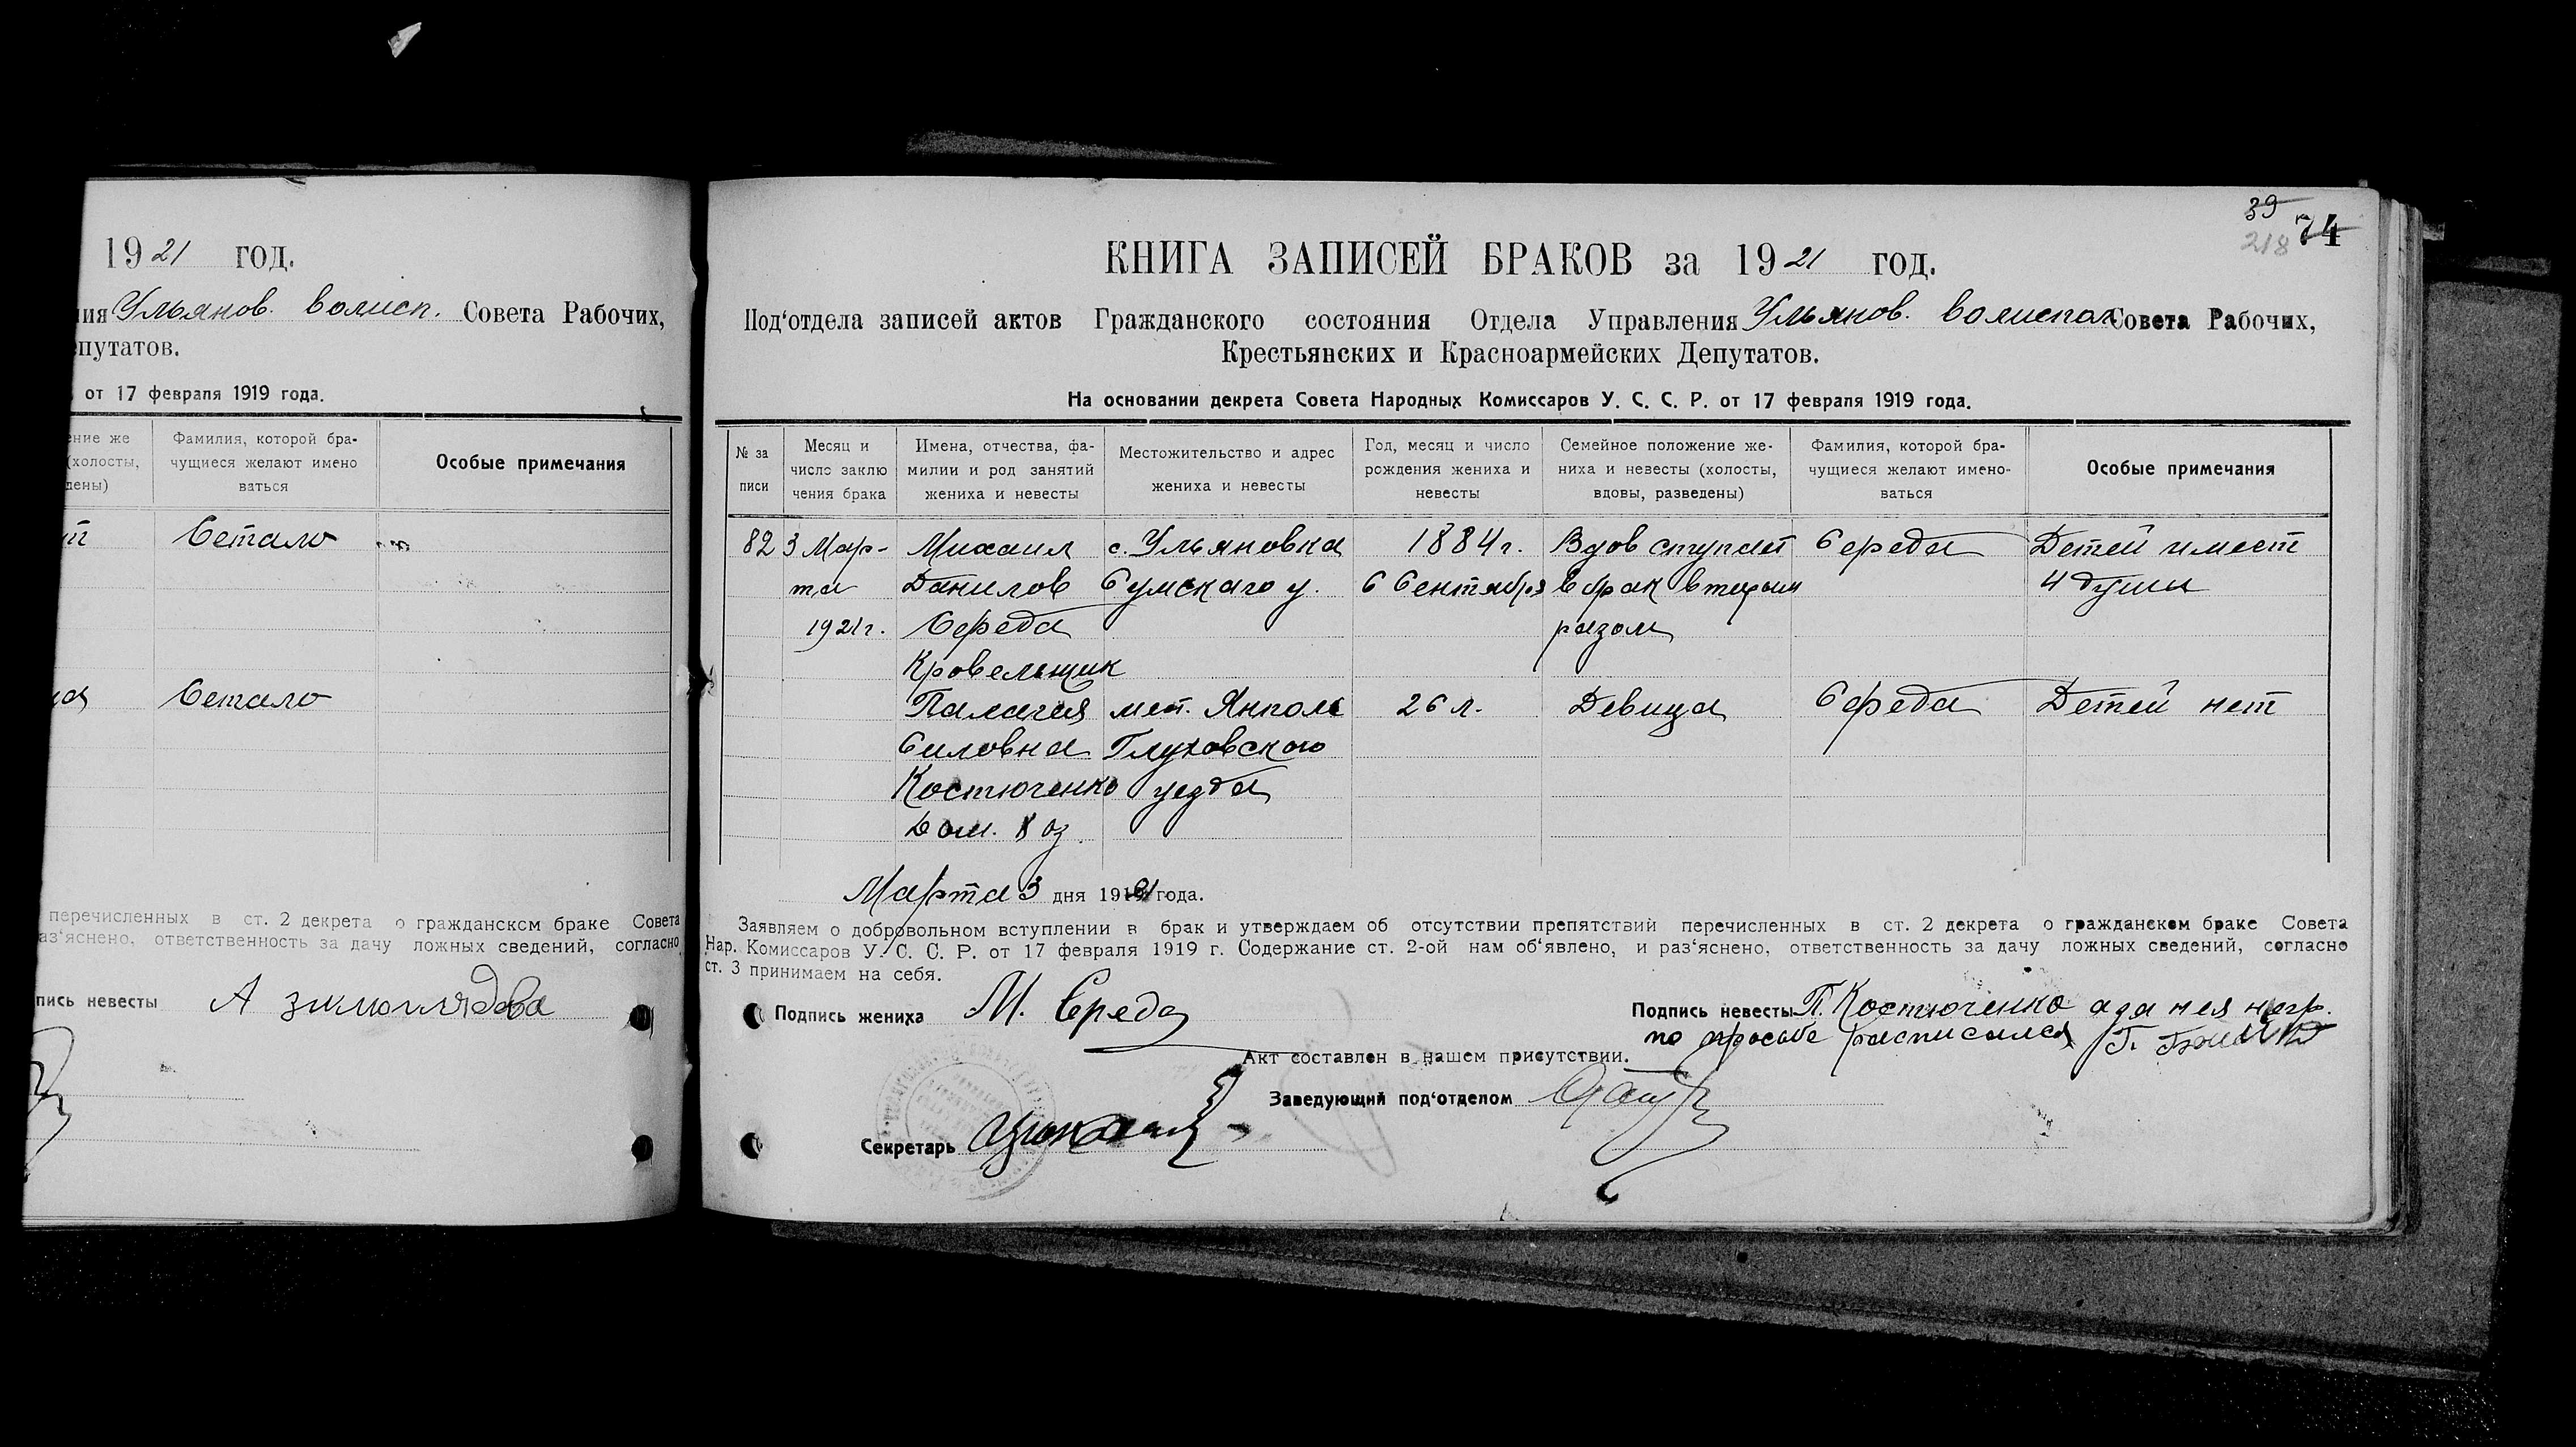 1921 год.
ия Ульянов. волисп. Совета Рабочих,
епутатов.
от 17 февраля 1919 года.
ение же
(холосты,
дены)
Фамилия, которой бра-
чущиеся желают имено
ваться
Особые примечания
Сетало
Сетало
перечисленных в ст. 2 декрета о гражданском браке Совета
аз'яснено, ответственность за дачу ложных сведений, согласно
пись невесты А
39
74
218
КНИГА ЗАПИСЕЙ БРАКОВ за 1921 год.
Под'отдела записей актов Гражданского состояния Отдела Управления Ульянов. волиспол Совета Рабочих,
Крестьянских и Красноармейских Депутатов.
На основании декрета Совета Народных Комиссаров У. С. С. Р. от 17 февраля 1919 года.
№ за
писи
Месяц и
число заклю
чения брака
Имена, отчества, фа-
милии и род занятий
жениха и невесты
Местожительство и адрес
жениха и невесты
Год, месяц и число
рождения жениха и
невесты
Семейное положение же-
ниха и невесты (холосты,
вдовы, разведены)
Фамилия, которой бра-
чущиеся желают имено-
ваться
Особые примечания
82 3 Мар- Михаил с. Ульяновка 1884 г. Вдов ступает Середа Детей имеет
та Данилов Сумскаго у. 6 Сентября в брак вторым 4 души
1921 г. Середа разом
Кровельщик
Палагея мест. Янполь 26 л. Девица Середа Детей нет
Силовна Глуховского
Костюченко уезда
Дом. Хоз.
Марта 3 дня 1921 года.
Заявляем о добровольном вступлении в брак и утверждаем об отсутствии препятствий перечисленных в ст. 2 декрета о гражданском браке Совета
Нар. Комиссаров У. С. С. Р. от 17 февраля 1919 г. Содержание ст. 2-ой нам об'явлено, и раз'яснено, ответственность за дачу ложных сведений, согласно
ст. 3 принимаем на себя.
Подпись жениха М. Середа Подпись невесты П. Костюченко а за нея негр.
по просьбе расписался Г.
Акт составлен в нашем присутствии.
Заведующий под'отделом
Секретарь